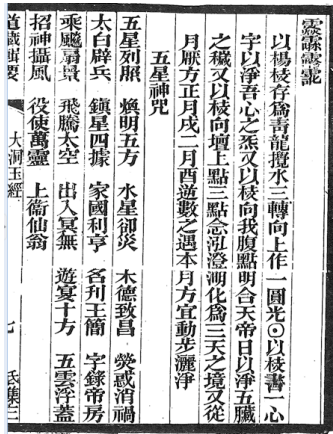 以楊枝存為青龍攪水三轉向上作一圓光⊙以枝書一心
字以淨吾心之炁又以枝向我腹點明合天帝日以淨五臟
之穢又以枝向壇上點三點念泓澄澒化為三天之境又從
月厭方正月戌二月酉逆數之遇本月方宜動步灑淨
五星神咒
五星列照 煥明五方 水星卻災 木德致昌 熒惑消禍
太白辟兵 鎮星四據 家國利亨 名刋玉簡 字錄帝房
乘飈扇景 飛騰太空 出入冥無 遊宴十方 五雲浮蓋
招神攝風 役使萬靈 上衞仙翁
道藏輯要 大洞玉經 七 氐集三